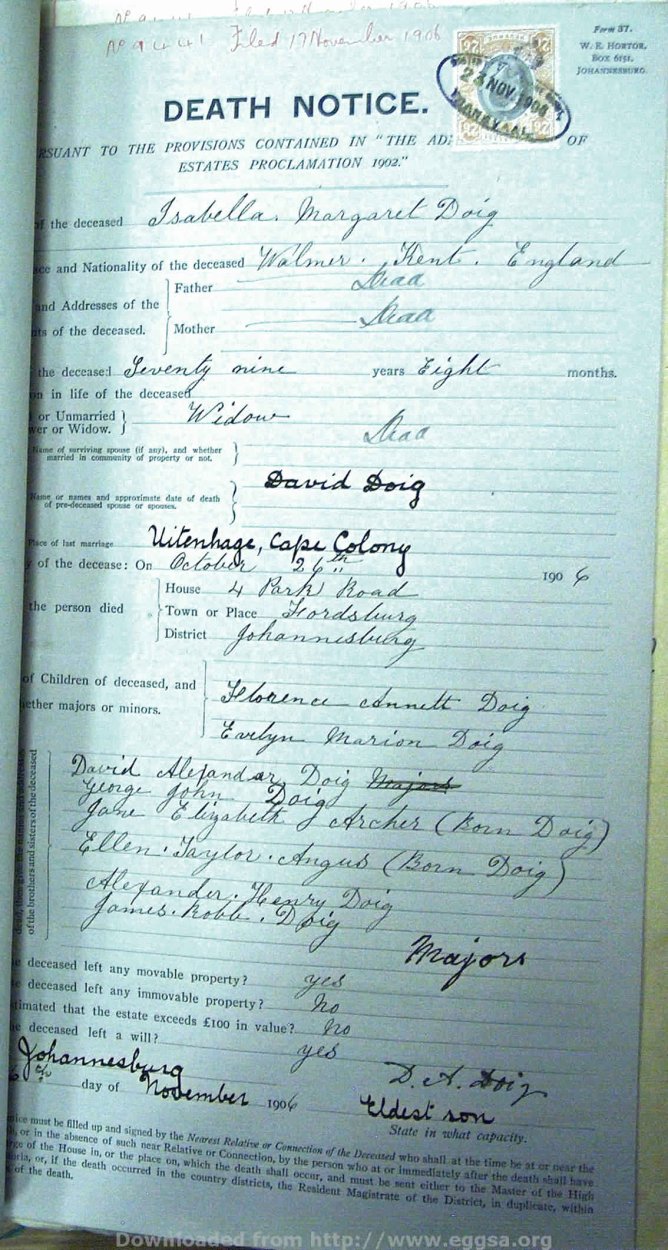 No 9441 Filed 17 November 1906
Form 37.
W. E. HORTOR,
BOX 6151,
JOHANNESBURG.
23 NOV 1906
TRANSVAAL
DEATH NOTICE.
RSUANT TO THE PROVISIONS CONTAINED IN "THE AD OF
ESTATES PROCLAMATION 1902."
of the deceased Isabella. Margaret Doig
ce and Nationality of the deceased Walmer. Kent. England
Father Dead
and Addresses of the
ts of the deceased.
Mother Dead
the deceased Seventy nine years Eight months.
on in life of the deceased
or Unmarried
wer or Widow. Widow
Dead
Name of surviving spouse (if any), and whether
married in community of property or not.
David Doig
Name or names and approximate date of death
of pre-deceased spouse or spouses.
Place of last marriage Uitenhage, Cape Colony
y of the decease: On October 26th 1906
House 4 Park Road
the person died Town or Place Fordsburg
District Johannesburg
of Children of deceased, and
ether majors or minors.
Florence Annett Doig
Evelyn Marion Doig
dead, then give the names and addresses
of the brothers and sisters of the deceased
David Alexandar Doig Majors
George John Doig
Jane Elizabeth Archer (Born Doig)
Ellen. Taylor. Angus (Born Doig)
Alexander. Henry Doig
James. Robb. Doig
Majors
e deceased left any movable property? yes
e deceased left any immovable property? No
timated that the estate exceeds £100 in value? No
e deceased left a will? yes
Johannesburg
6th day of November 1906
D. A. Doig
Eldest son
State in what capacity.
tice must be filled up and signed by the Nearest Relative or Connection of the Deceased who shall at the time be at or near the
h, or in the absence of such near Relative or Connection, by the person who at or immediately after the death shall have
rge of the House in, or the place on, which the death shall occur, and must be sent either to the Master of the High
oria, or, if the death occurred in the country districts, the Resident Magistrate of the District, in duplicate, within
s of the death.
Downloaded from http://www.eggsa.org